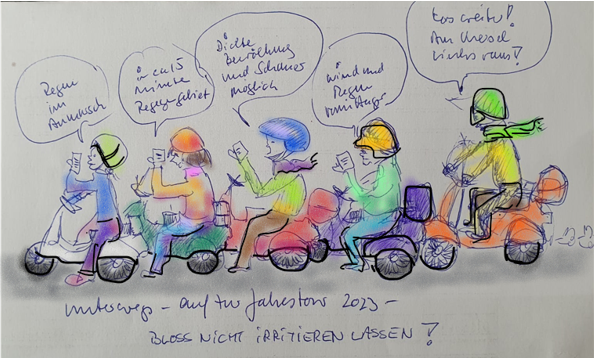 Regen
im
Anmarsch
in ca 15
Minuten
Regengebiet
Dichte
Bewölkung
und Schauer
möglich
Wind und
Regen
Los weiter!
Am
links raus!
unterwegs - auf der Jahrestour 2023 -
BLOSS NICHT IRRITIEREN LASSEN!